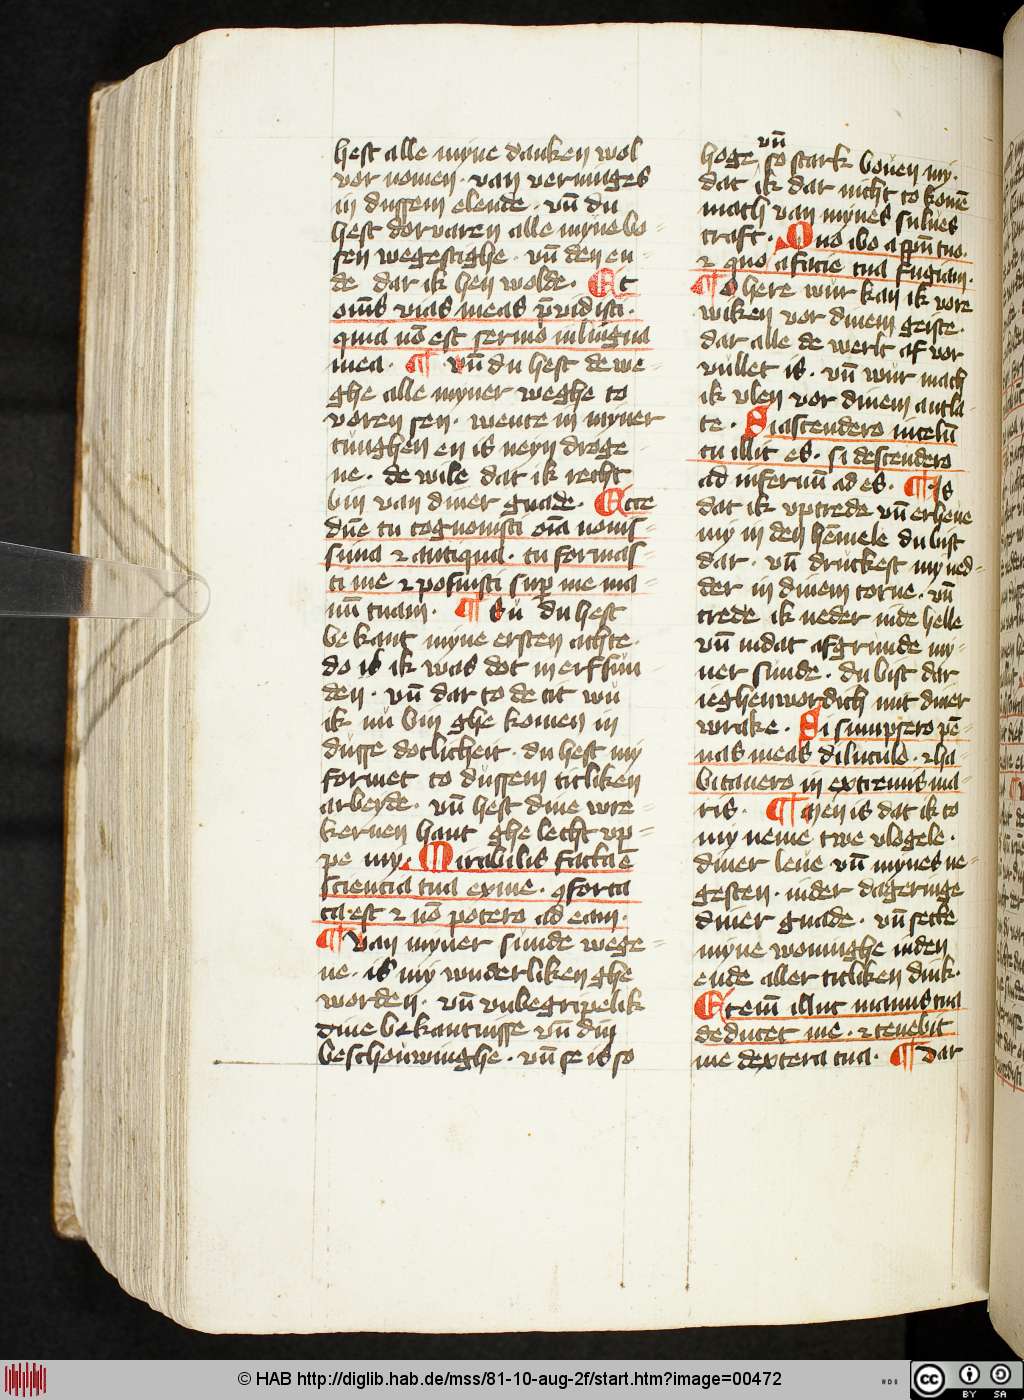 hest alle myne danken wol
vor nomen · van verninges
in dussem elende · vn̄ du
hest dorvaren alle myne bo=
sen wegestighe · vn̄ den en=
de dar ik hen wolde · Et
om̄s vias meas p̄vidisti ·
quia nō est sermo in lingua
mea · ¶ vn̄ du hest de we=
ghe alle myner weghe to
voren sen · wente in myner
tunghen en is neyn droge=
ne · de wile dat ik recht
bin van diner gnade · Ecce
dn̄e tu cognovisti oīa novis=
sima ⁊ antiqua · tu formas=
ti me ⁊ posuisti sup̄ me ma=
nū tuam · ¶ Su du hest
be kant myne ersten achte ·
do is ik was dot in erfsun=
den · vn̄ dar to de tit wu
ik nu bin ghe komen in
dusse dotlicheit · du hest my
formet to dussem titliken
arbeyde · vn̄ hest dine wre=
kernen hant ghe lecht vp=
pe my · Mirabilis facta ē
sciencia tua ex me · ꝯforta
ta est ⁊ nō potero ad eam ·
¶ van myner sunde wege=
ne · is my wnderliken ghe
worden · vn̄ vnbegripelik
dine bekantnisse vn̄ din
beschouwinghe · vn̄ se is so
hoge vn̄ so stark boven my ·
dat ik dar nicht to komē
mach van mynes sulves
craft · Quo ibo a spū tuo
⁊ quo a facie tua fugiam ·
¶ O here wur kan ik vore
wiken vor dinem geiste ·
dar alle de werlt af vor
vullet is · vn̄ wur mach
ik vlen vor dinem antla
te · Si ascendero in celū
tu illic es · si descendero
ad infernū ad es · ¶ Is
dat ik vptrede vn̄ erheve
my in den hēmele du bist
dar · vn̄ druckest my ned=
der in dinem torne · vn̄
trede ik neder in de helle
vn̄ in dat afgrunde my=
ner sunde · du bist dar
ieghenwordich mit diner
wrake · Si sumpsero pē=
nas meas diluculo · ⁊ ha
bitavero in extremis ma=
ris · ¶ Men is dat ik to
my neme twe vlogele ·
diner leve vn̄ mynes ne=
gesten · in der dageringe
diner gnade · vn̄ secke
myne woninghe in den
ende aller titliken dink ·
Etenī illuc manus tua
deducet me · ⁊ tenebit
me dextera tua · ¶ Dar
© HAB http://diglib.hab.de/mss/81-10-aug-2f/start.htm?image=00472
HAB
cc BY SA